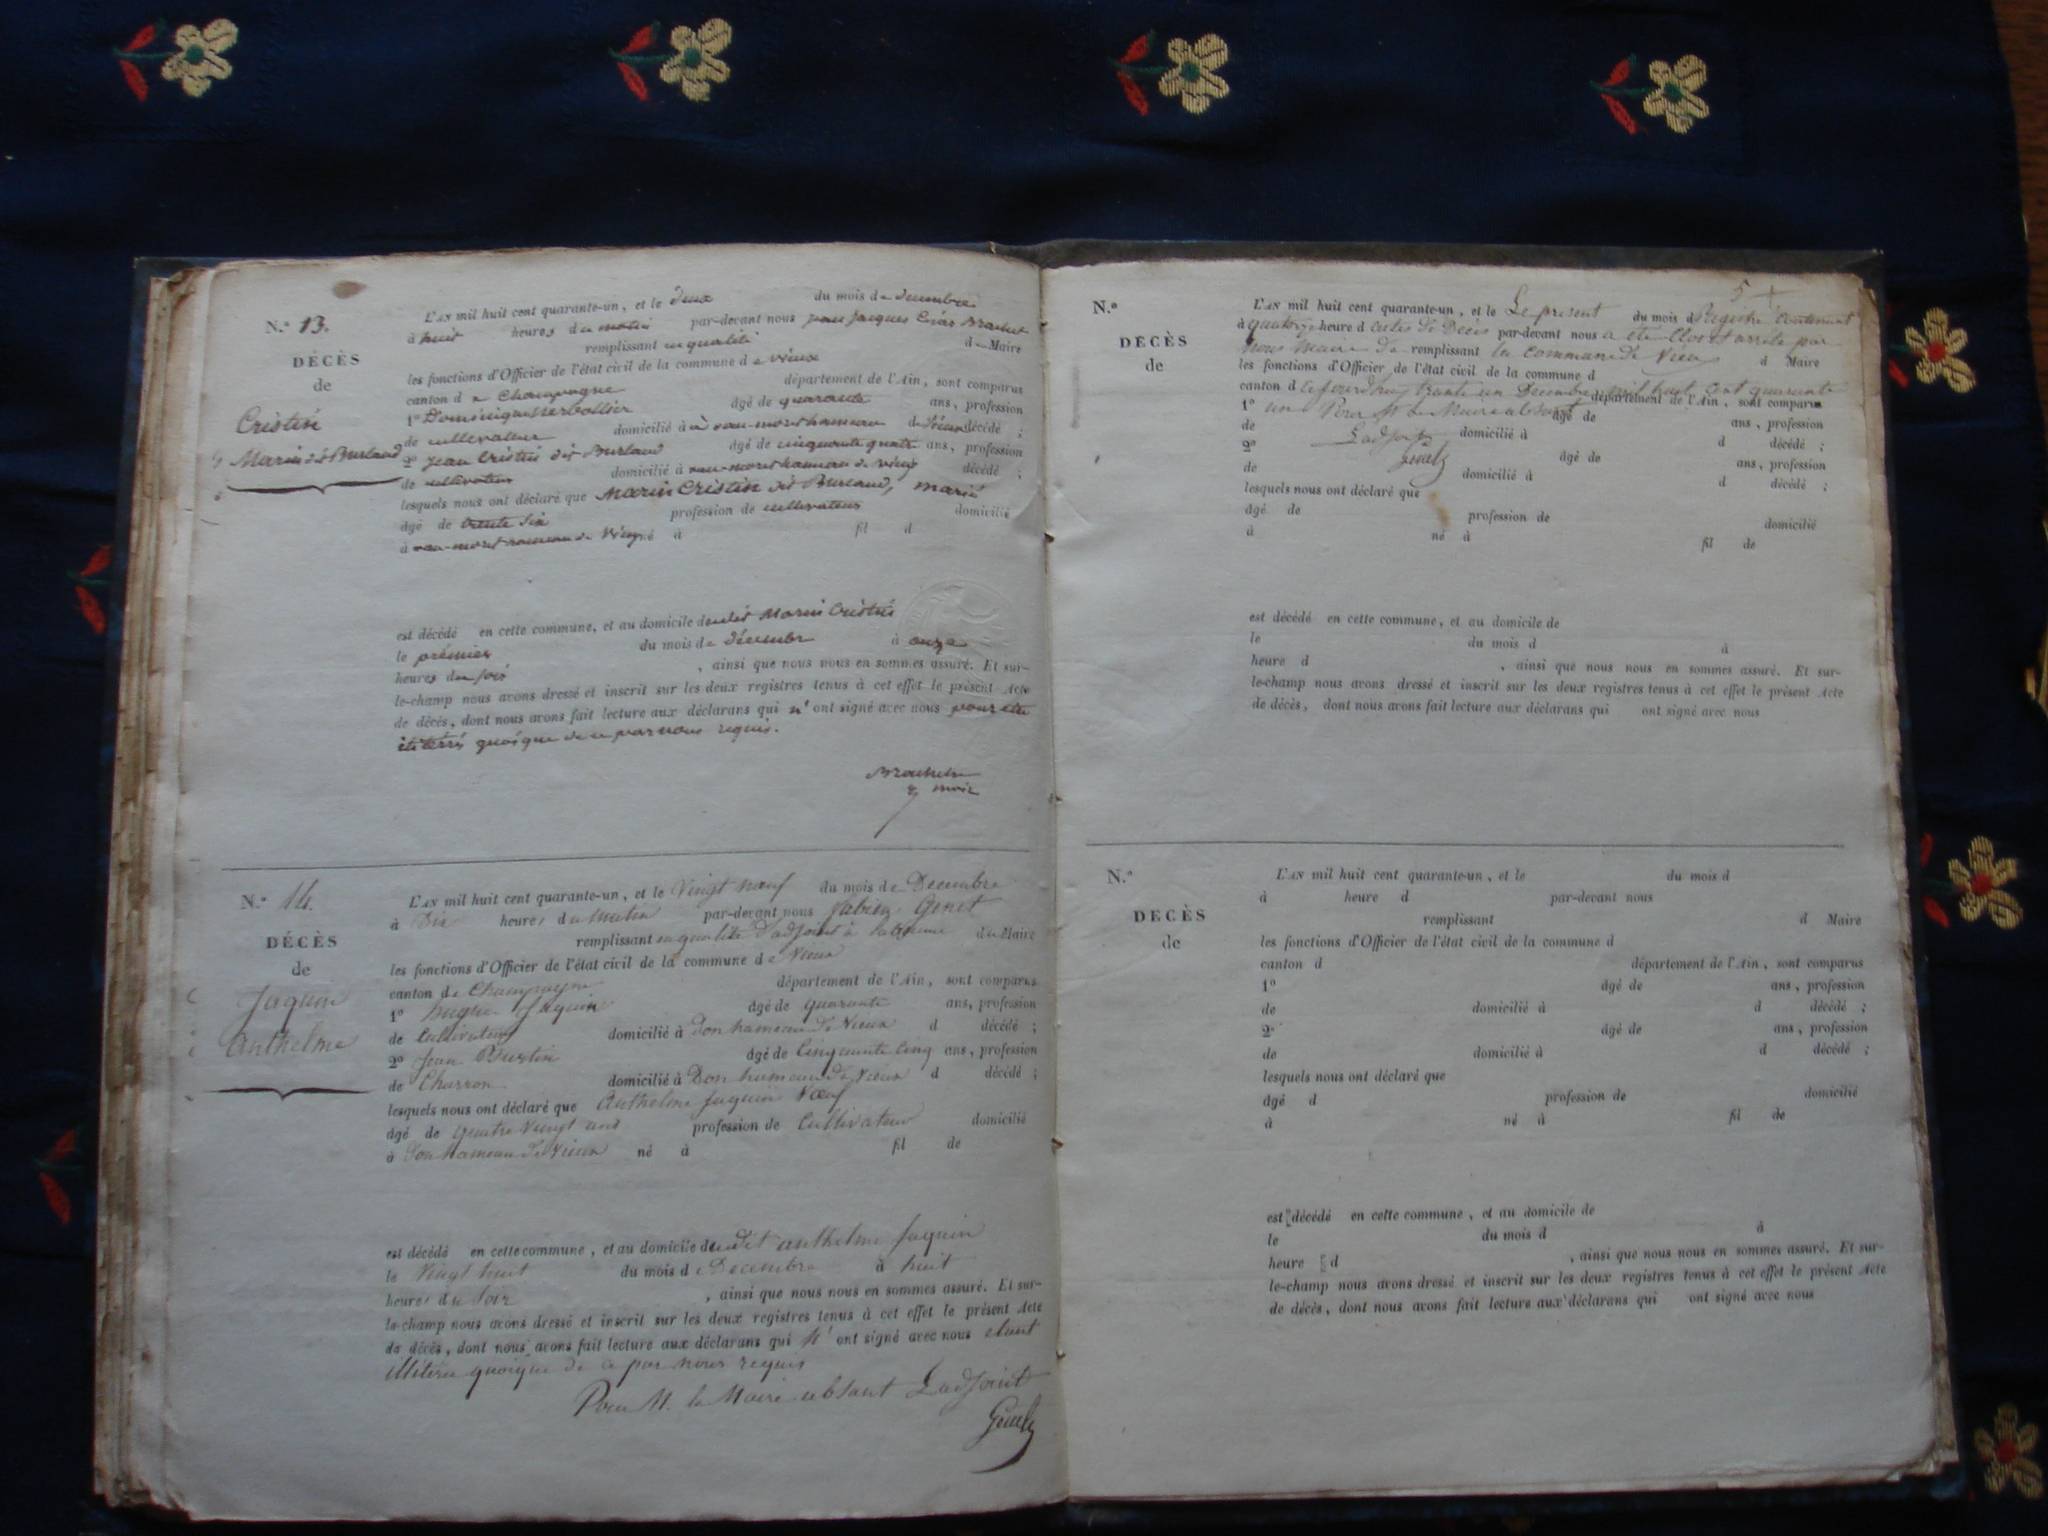 N.º 13.
DÉCÈS
de
Cristin
Marin dit Burlaud
L'AN mil huit cent quarante-un, et le deux du mois de decembre
à huit heures du matin par-devant nous jean jacques Brachet
remplissant en qualité de Maire
les fonctions d'Officier de l'état civil de la commune de vieux
canton de Champagne département de l'Ain, sont comparus
1º Dominique âgé de quarante ans, profession
de cultivateur domicilié à vau-mort hameau de vieux décédé ;
2º jean Cristin dit Burlaud âgé de cinquante quatre ans, profession
de cultivateur domicilié à vau-mort hameau de vieux décédé ;
lesquels nous ont déclaré que Marin Cristin dit Burlaud, marié
âgé de trente six profession de cultivateur domicilié
à vau-mort hameau de vieux né à fil d
est décédé en cette commune, et au domicile dudit Marin Cristin
le prémier du mois de décembre à onze
heures du soir , ainsi que nous nous en sommes assuré. Et sur-
le-champ nous avons dressé et inscrit sur les deux registres tenus à cet effet le présent Acte
de décès, dont nous avons fait lecture aux déclarans qui n' ont signé avec nous pour être
quoique de ce par nous requis.
N.º 14.
DÉCÈS
de
Jaquin
Anthelme
L'AN mil huit cent quarante-un, et le Vingt neuf du mois de Decembre
à Dix heures du Matin par-devant nous fabien Genet
remplissant en qualité d'adjoint à du Maire
les fonctions d'Officier de l'état civil de la commune de Vieux
canton de Champagne département de l'Ain, sont comparus
1º hugue Jaquin âgé de quarante ans, profession
de Cultivateur domicilié à Don hameau de Vieux d décédé ;
2º Jean Burtin âgé de Cinquante Cinq ans, profession
de Charron domicilié à Don hameau de Vieux d décédé ;
lesquels nous ont déclaré que Anthelme Jaquin Vœuf
âgé de quatre Vingt ans profession de Cultivateur domicilié
à Don hameau de Vieux né à fil de
est décédé en cette commune, et au domicile dudit anthelme Jaquin
le Vingt huit du mois de Decembre à huit
heures du Soir , ainsi que nous nous en sommes assuré. Et sur-
le-champ nous avons dressé et inscrit sur les deux registres tenus à cet effet le présent Acte
de décès, dont nous avons fait lecture aux déclarans qui N' ont signé avec nous etant
quoique de ce par nous requis
Pour M. le Maire absant L'adjoint
N.º
DÉCÈS
de
5 +
L'AN mil huit cent quarante-un, et le Le present du mois d Registre Contenant
à quatorze heure d actes de Décès par-devant nous a été Clos et arrêté par
nous Maire de remplissant la Commune de Vieux d Maire
les fonctions d'Officier de l'état civil de la commune d
canton d cejourd'huy trante un Decembre mil huit cent quarante département de l'Ain, sont comparus
1º un Pour M. Le Maire absant âgé de ans, profession
de L'adjoint domicilié à d décédé ;
2º âgé de ans, profession
de domicilié à d décédé ;
lesquels nous ont déclaré que
âgé de profession de domicilié
à né à fil de
est décédé en cette commune, et au domicile de
le du mois d à
heure d , ainsi que nous nous en sommes assuré. Et sur-
le-champ nous avons dressé et inscrit sur les deux registres tenus à cet effet le présent Acte
de décès, dont nous avons fait lecture aux déclarans qui ont signé avec nous
N.º
DÉCÈS
de
L'AN mil huit cent quarante-un, et le du mois d
à heure d par-devant nous
remplissant d Maire
les fonctions d'Officier de l'état civil de la commune d
canton d département de l'Ain, sont comparus
1º âgé de ans, profession
de domicilié à d décédé ;
2º âgé de ans, profession
de domicilié à d décédé ;
lesquels nous ont déclaré que
âgé d profession de domicilié
à né à fil de
est décédé en cette commune, et au domicile de
le du mois d à
heure d , ainsi que nous nous en sommes assuré. Et sur-
le-champ nous avons dressé et inscrit sur les deux registres tenus à cet effet le présent Acte
de décès, dont nous avons fait lecture aux déclarans qui ont signé avec nous